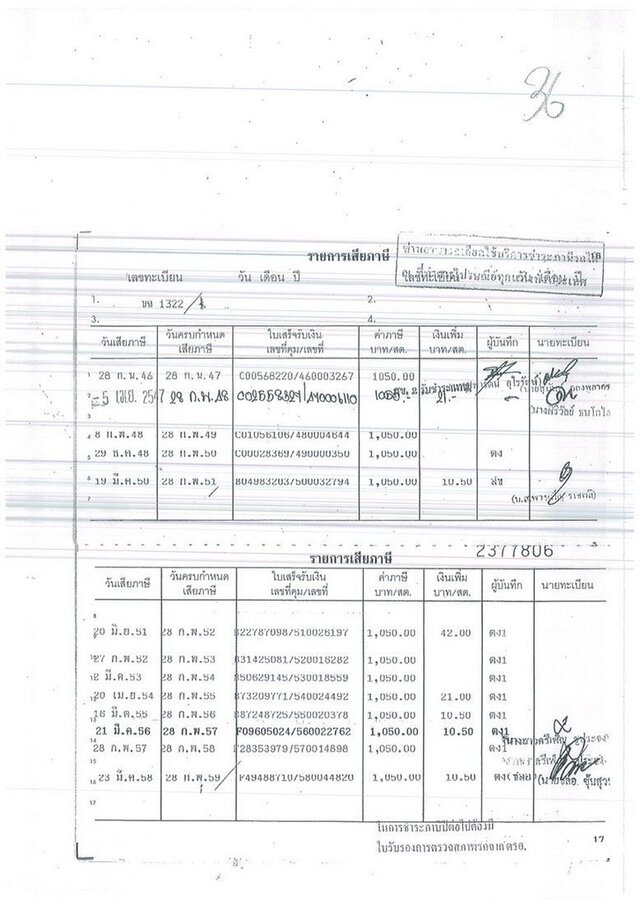 36
รายการเสียภาษี
เลขทะเบียน วัน เดือน ปี
1. บฉ 1322 2.
3. 4.
วันเสียภาษี วันครบกำหนดเสียภาษี ใบเสร็จรับเงิน เลขที่คุม/เลขที่ ค่าภาษี บาท/สต. เงินเพิ่ม บาท/สต. ผู้บันทึก นายทะเบียน
28 ก.พ.46 28 ก.พ.47 C00568220/460003267 1050.00
-5 เม.ย. 2547 28 ก.พ.48
8 ก.พ.48 28 ก.พ.49 C01056106/480004644 1,050.00
29 ธ.ค.48 28 ก.พ.50 C00028369/490000350 1,050.00 ตง
6 19 มี.ค.50 28 ก.พ.51 B04983203/500032794 1,050.00 10.50
7
2377806
รายการเสียภาษี
วันเสียภาษี วันครบกำหนดเสียภาษี ใบเสร็จรับเงิน เลขที่คุม/เลขที่ ค่าภาษี บาท/สต. เงินเพิ่ม บาท/สต. ผู้บันทึก นายทะเบียน
20 มิ.ย.51 28 ก.พ.52 B22787098/510026197 1,050.00 42.00 ตง1
27 ก.พ.52 28 ก.พ.53 B31425081/520016282 1,050.00 ตง1
2 มี.ค.53 28 ก.พ.54 B50629145/530018559 1,050.00 ตง1
20 เม.ย.54 28 ก.พ.55 B73209771/540024492 1,050.00 21.00 ตง1
16 มี.ค.55 28 ก.พ.56 B87248725/550020378 1,050.00 10.50 ตง1
21 มี.ค.56 28 ก.พ.57 F09605024/560022762 1,050.00 10.50 ตง1
28 ก.พ.57 28 ก.พ.58 F28353979/570014898 1,050.00 ตง1
16 23 มี.ค.58 28 ก.พ.59 F49488710/580044820 1,050.00 10.50
17
ในการชำระภาษีปีต่อไปต้องมี
ใบรับรองการตรวจสภาพรถจาก ตรอ.
17